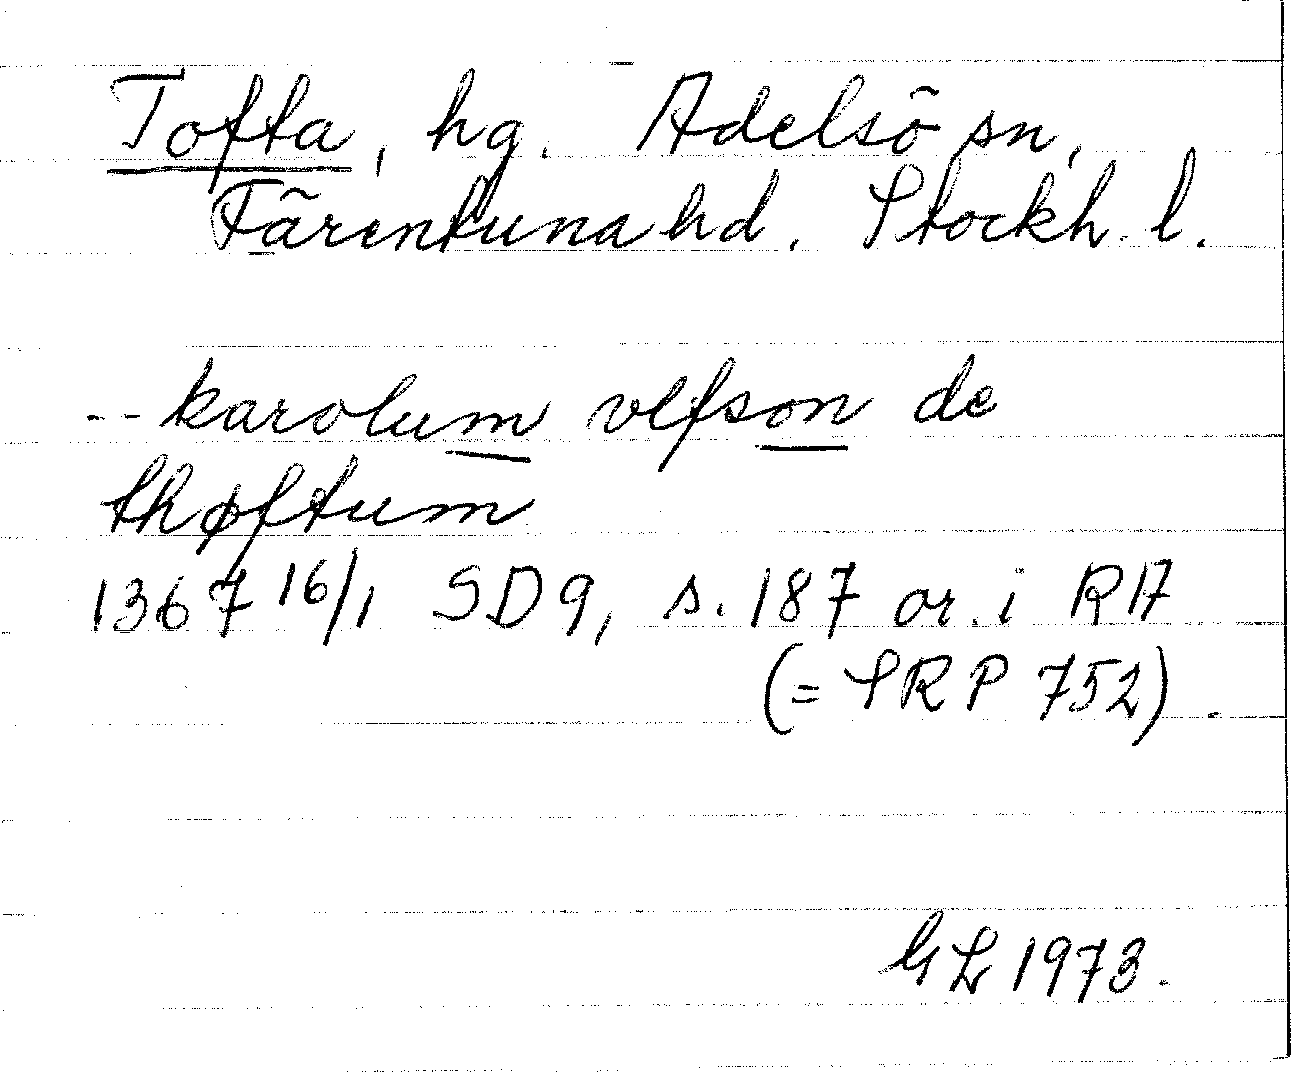 Tofta, hg. Adelsö sn,
Färentuna hd. Stockh. l.
-- karolum vlfson de
thøftum
1367 16/1 SD 9, s. 187 or. i RA
(= SRP 752).
GL 1973.